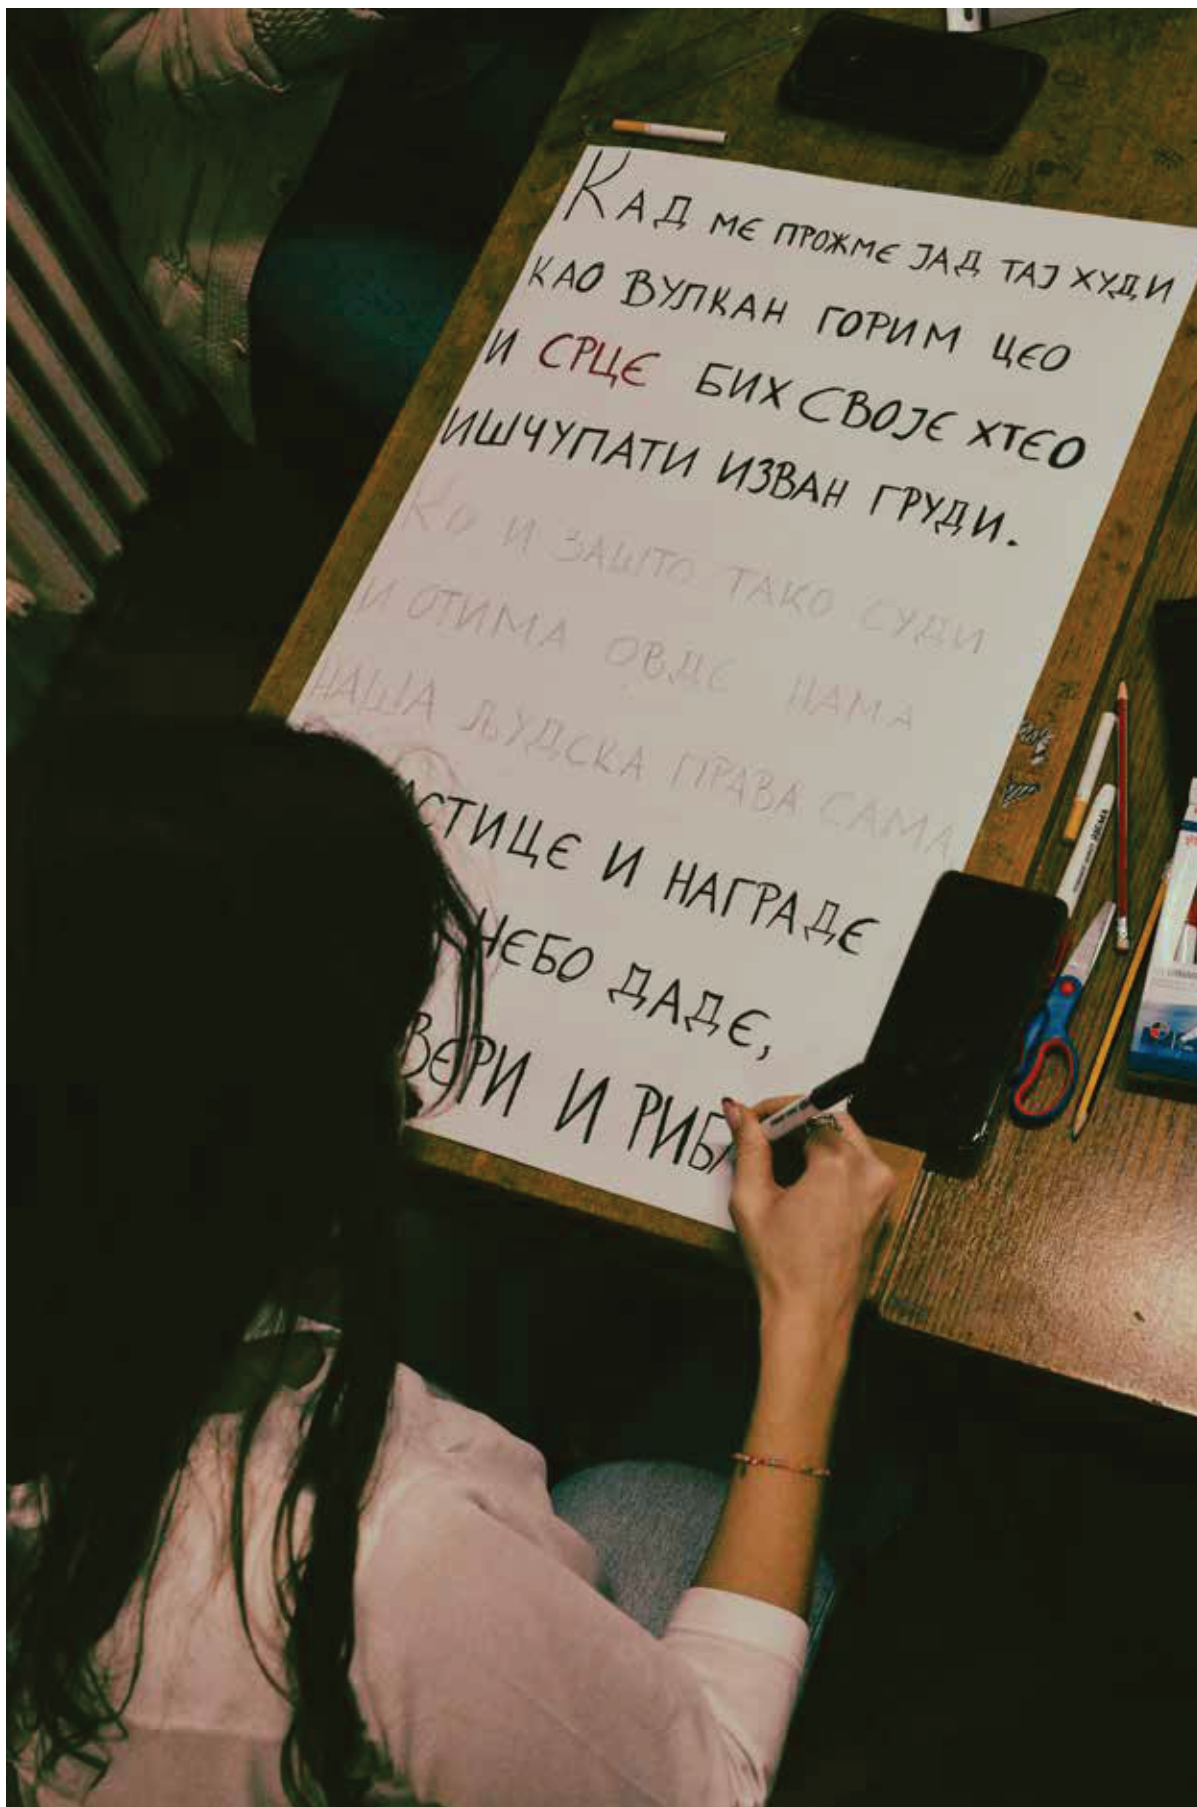 КАД МЕ ПРОЖМЕ ЈАД ТАЈ ХУДИ
КАО ВУЛКАН ГОРИМ ЦЕО
И СРЦЕ БИХ СВОЈЕ ХТЕО
ИШЧУПАТИ ИЗВАН ГРУДИ.
КО И ЗАШТО ТАКО СУДИ
И ОТИМА ОВДЕ НАМА
НАША ЉУДСКА ПРАВА САМА
И НАГРАДЕ
НЕБО ДАДЕ,
И